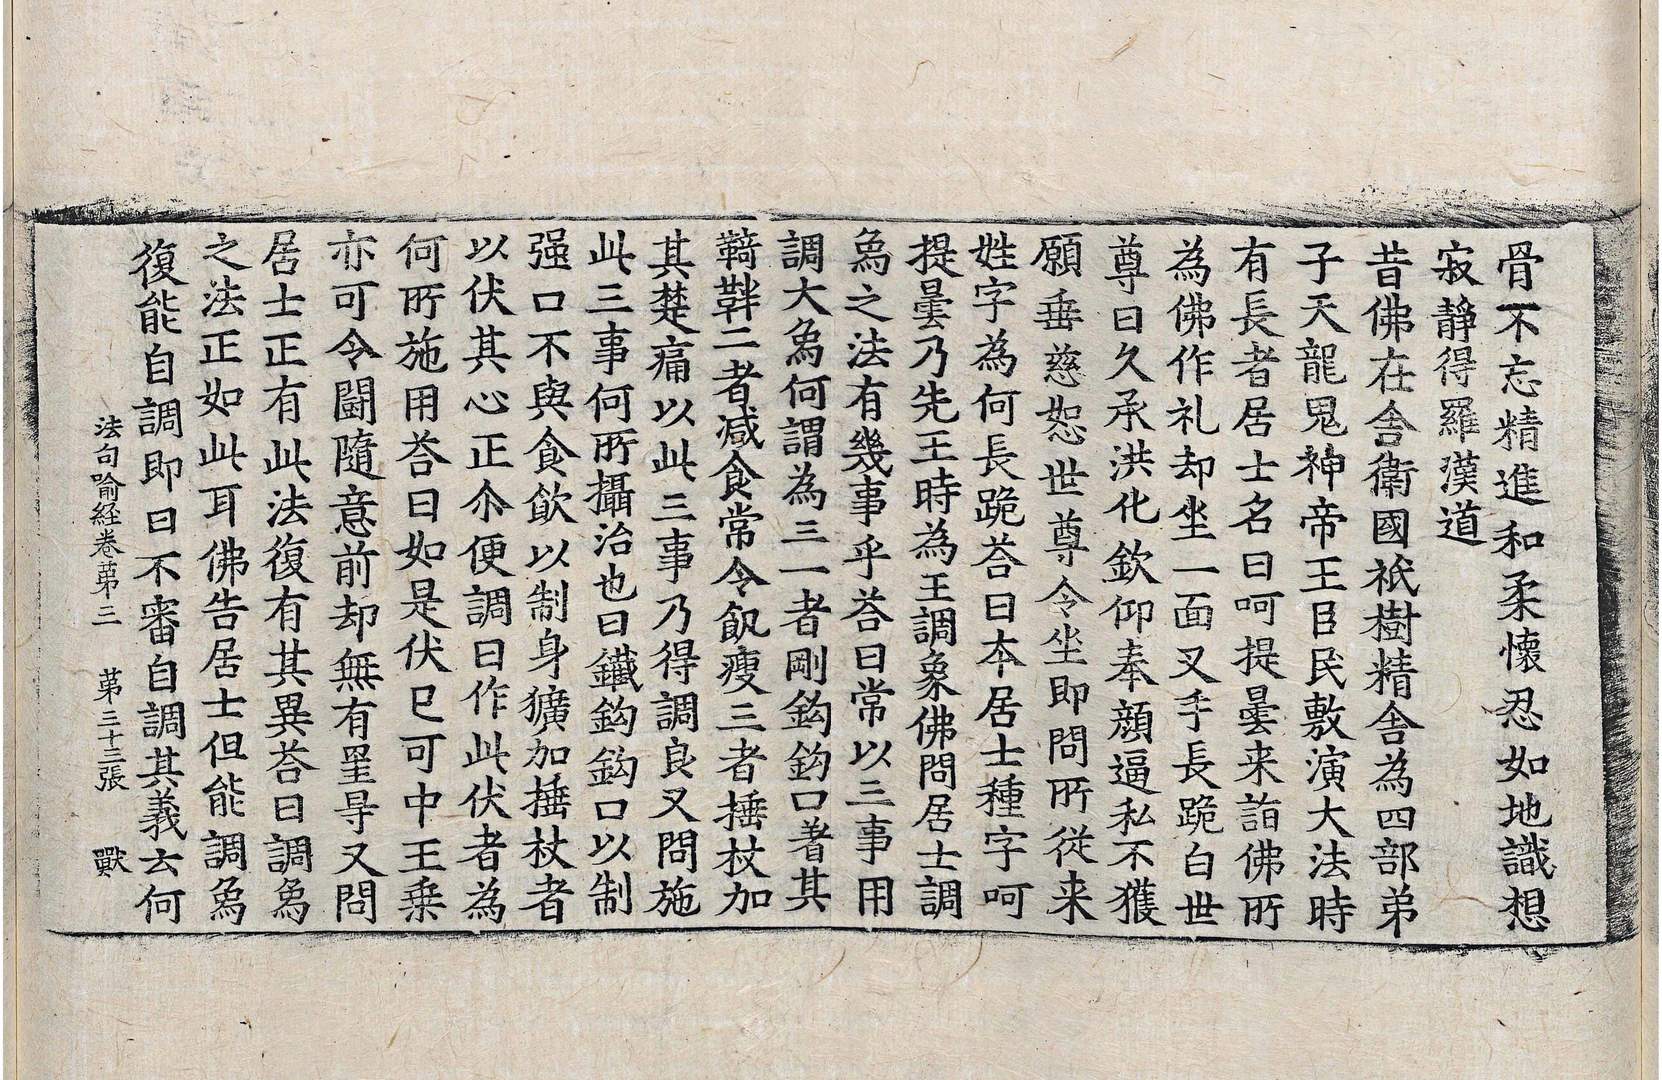 骨不忘精進和柔懷忍如地識想
寂靜得羅漢道
昔佛在舍衛國祇樹精舍為四部弟
子天龍鬼神帝王臣民敷演大法時
有長者居士名曰呵提曇来詣佛所
為佛作礼却坐一面叉手長跪白世
尊曰久承洪化欽仰奉顔逼私不獲
願垂慈恕世尊令坐即問所從来
姓字為何長跪荅曰本居士種字呵
提曇乃先王時為王調象佛問居士調
象之法有幾事乎荅曰常以三事用
調大象何謂為三一者剛鈎鈎口著其
鞿靽二者減食常令飢瘦三者捶杖加
其楚痛以此三事乃得調良又問施
此三事何所攝治也曰鐵鈎鈎口以制
强口不與食飲以制身獷加捶杖者
以伏其心正尒便調曰作此伏者為
何所施用荅曰如是伏已可中王乗
亦可令鬪隨意前却無有罣㝵又問
居士正有此法復有其異荅曰調象
之法正如此耳佛告居士但能調象
復能自調即曰不審自調其義云何
法句喻経卷苐三　苐三十三張　獸